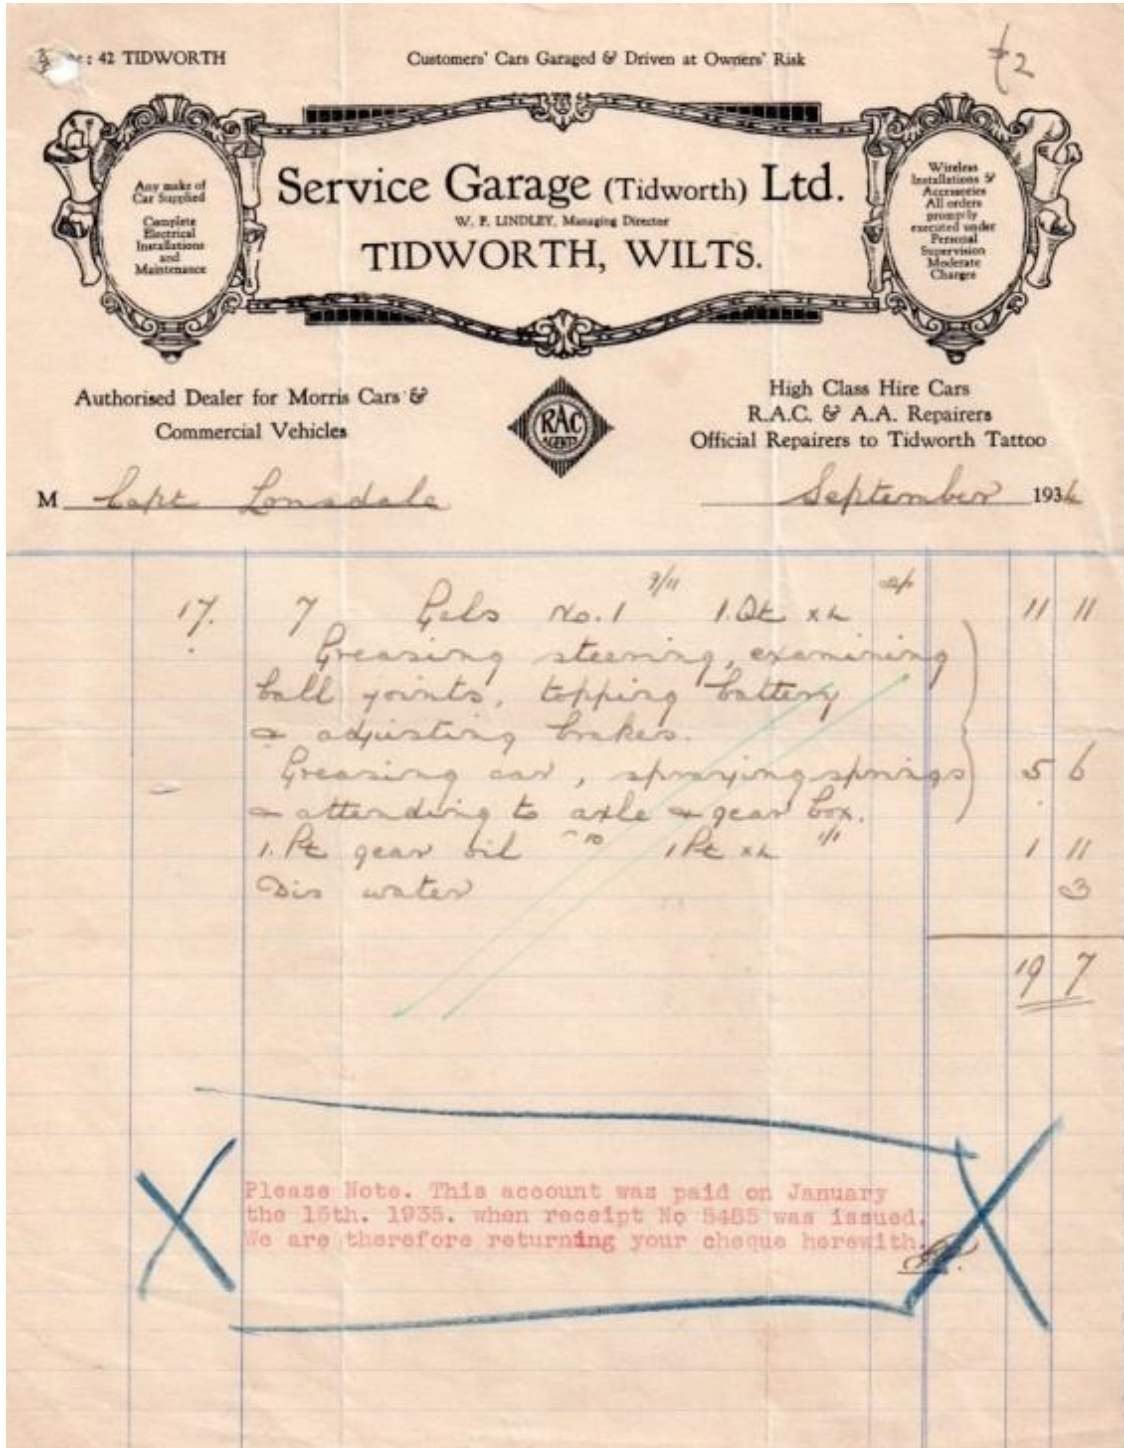 : 42 TIDWORTH
Customers' Cars Garaged & Driven at Owners' Risk
Any make of
Car Supplied
Complete
Electrical
Installations
and
Maintenance
Service Garage (Tidworth) Ltd.
W. F. LINDLEY, Managing Director
TIDWORTH, WILTS.
Wireless
Installations &
Accessories
All orders
promptly
executed under
Personal
Supervision
Moderate
Charges
Authorised Dealer for Morris Cars &
Commercial Vehicles
RAC
AGENTS
High Class Hire Cars
R.A.C. & A.A. Repairers
Official Repairers to Tidworth Tattoo
M Capt Lonsdale
September 1934
17. 7 Gals No. 1 9/11 1 Qt XL 2/- 11 11
Greasing steering, examining
ball joints, topping battery
& adjusting brakes.
Greasing car, spraying springs 5 6
& attending to axle & gear box.
1. Pt gear oil -10 1 Pt XL 1/1 1 11
Dis water 3
19 7
Please Note. This account was paid on January
the 15th. 1935. when receipt No 5485 was issued.
We are therefore returning your cheque herewith.